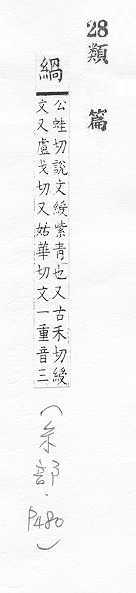 28類
篇
緺
公蛙切說文綬紫青也又古禾切綬
文又盧戈切又姑華切文一重音三
(糸部.P480)